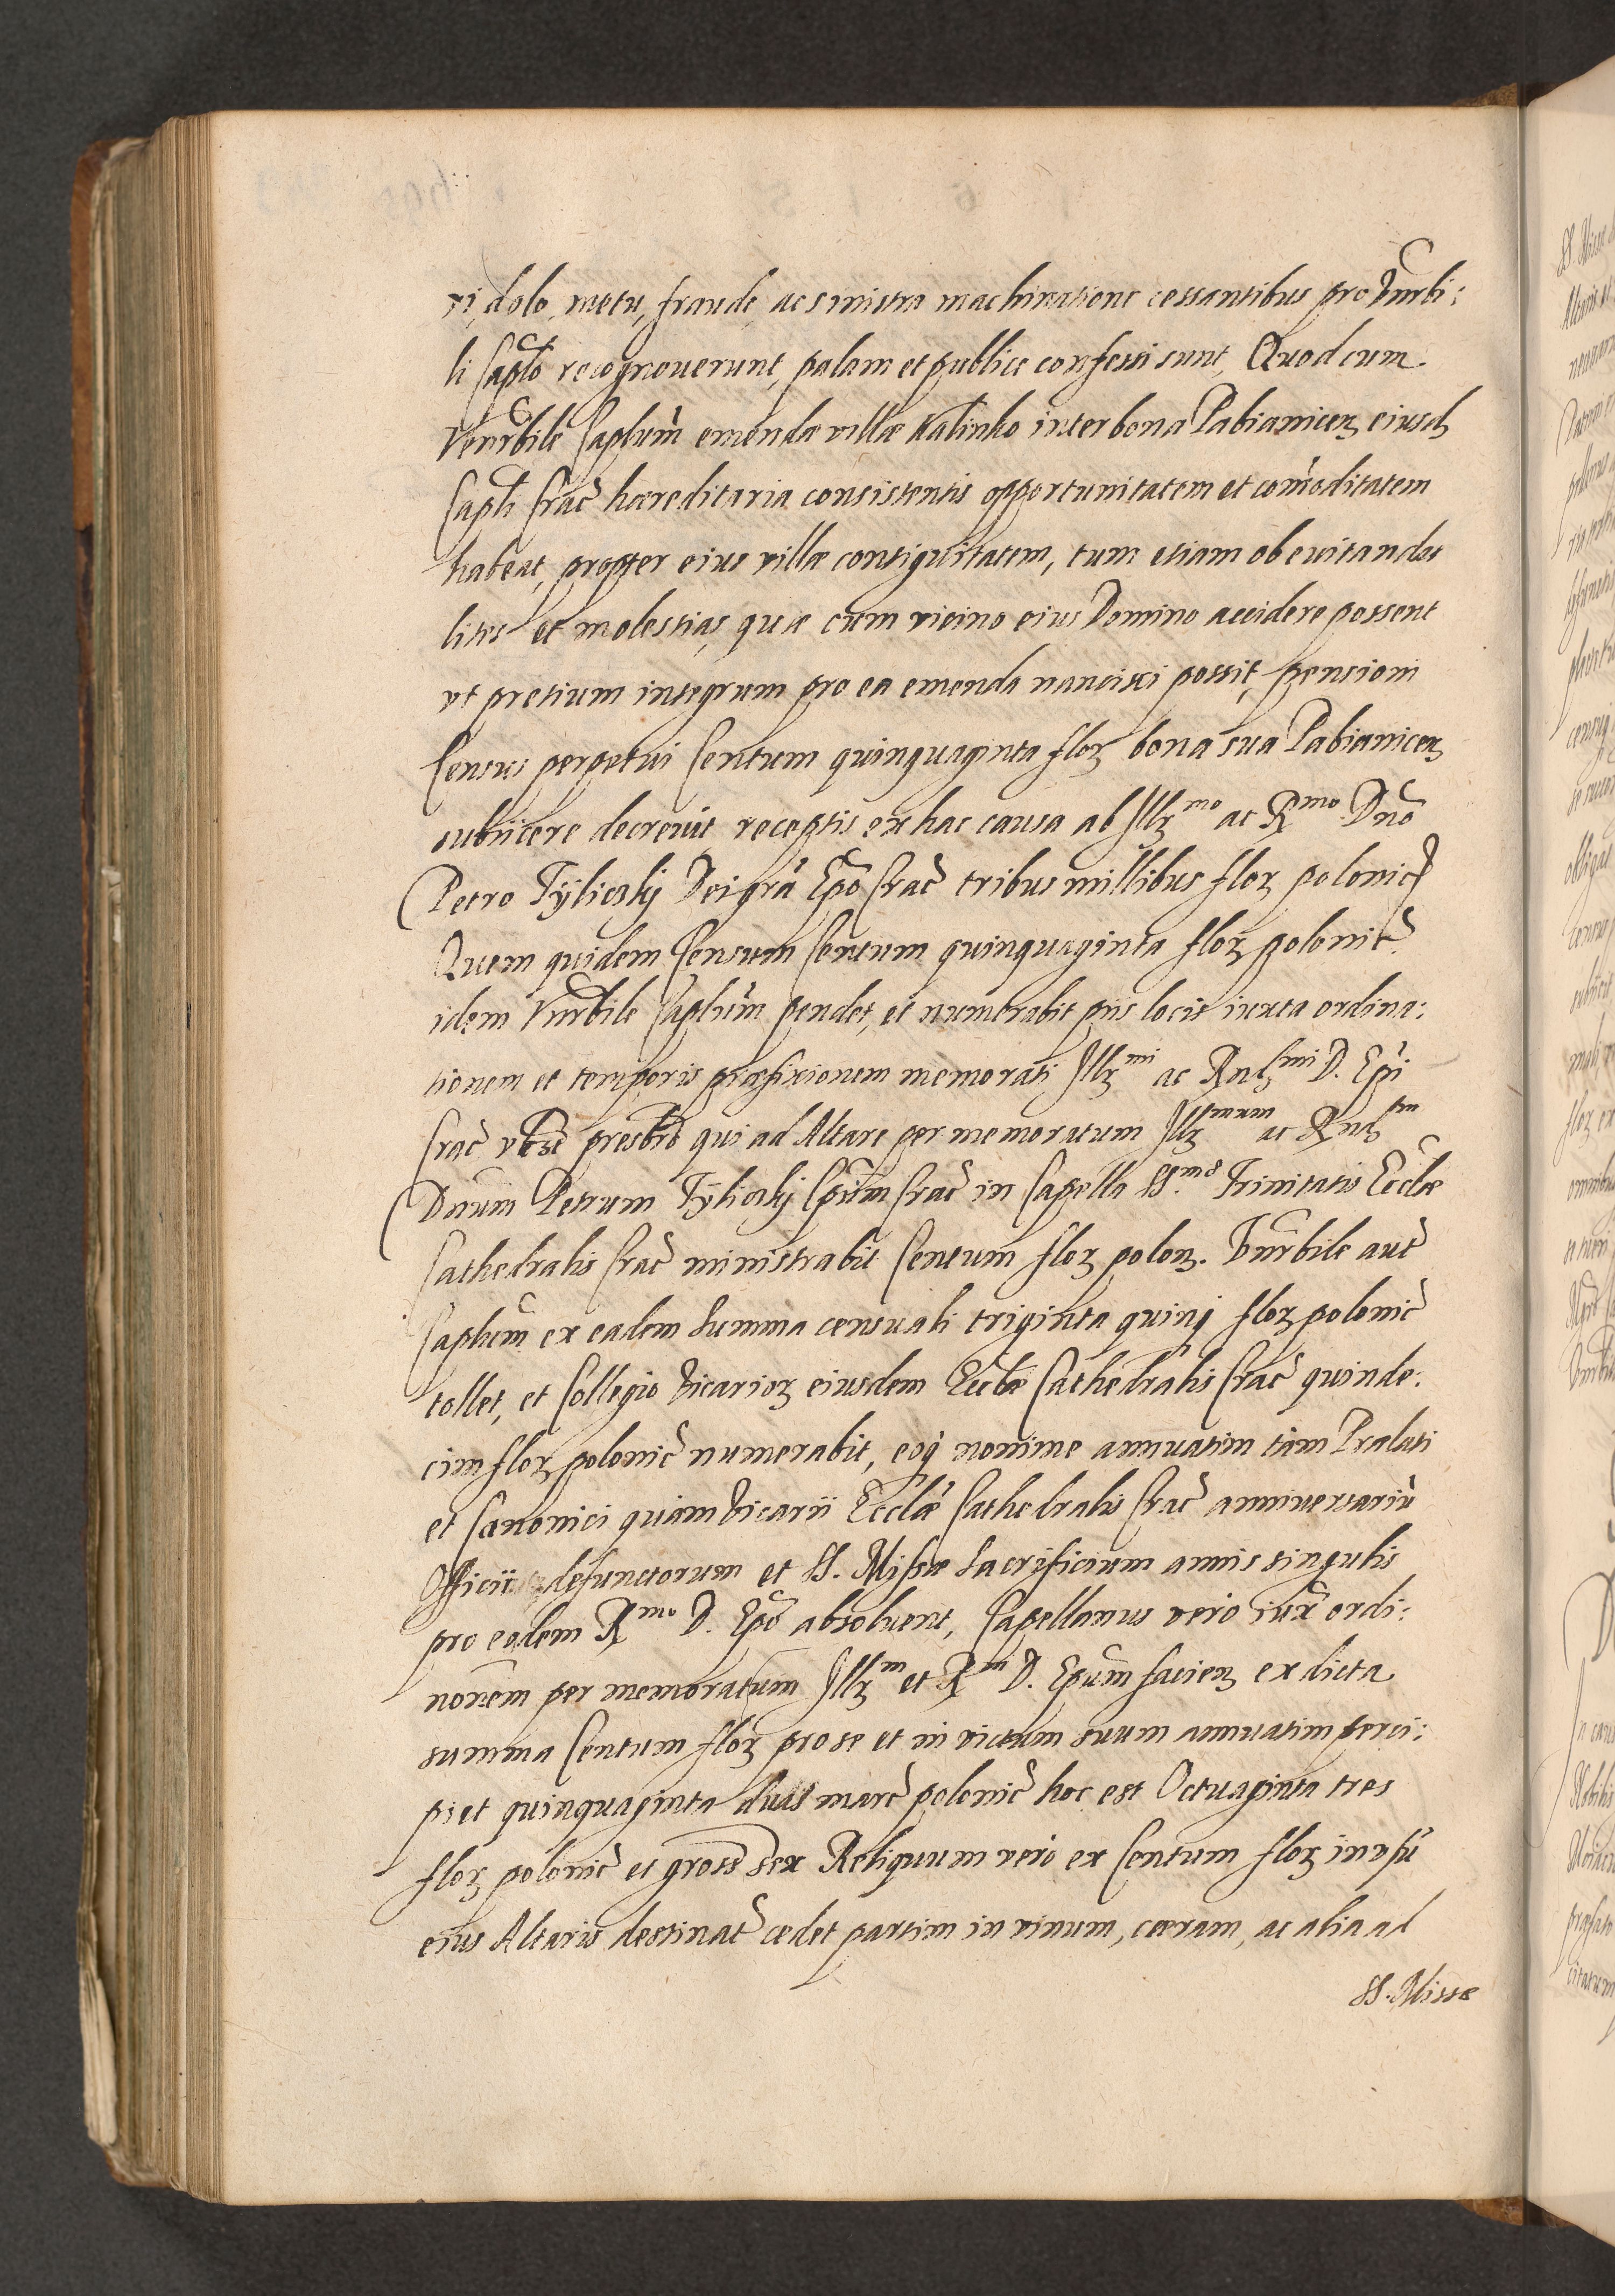 vi, dolo, metu, fraude, ac sinistra machinatione cessantibus pro Vnrbi:
li Caplo recognouerunt, palam et publice confessi sunt, Quod cum
Venrbile Caplum emendæ villæ Kalinko inter bona Pabianicen eiusd
Capli Crac hæreditaria consistentis opportunitatem et comoditatem
habeat, propter eius villæ contiguitatem, tum etiam ob euitandas
lites et molestias, quæ cum vicino eius Domino accidere possent
vt pretium integrum pro ea emenda nancisci possit, pensioni
Census perpetui Centum quinquaginta flor bona sua Pabianicen
subiicere decreuit receptis ex hac causa ab Illr^mo ac R^mo Dno
Petro Tylicky Dei gra Epo Crac tribus millibus flor polonic
Quem quidem Censum Centum quinquaginta flor polonic
idem Vnrbile Caplum pendet, et numerabit piis locis iuxta ordina:
tionem et temporis præfixionem memorati Illr^mi ac Rnd^smi D. Epi
Crac presbro qui ad Altare per memoratum Illr^smum ac Rnd^sm
Dnum Petrum Tylicky Epum Crac in Capella SS.^mæ Trinitatis Ecclæ
Cathedralis Crac ministrabit Centum flor polon. Vnrbile aut
Caplum ex eadem summa censuali triginta quinq flor polonic
tollet, et Collegio Vicarior eiusdem Ecclæ Cathedralis Crac quinde:
cim flor polonic numerabit, eoq nomine annuatim tam Prælati
et Canonici quam Vicarii Ecclæ Cathedralis Crac anniuersariu
Officii defunctorum et SS. Missæ Sacrificium annis singulis
pro eodem R^mo D. Epo absoluent, Capellanus vero iux ordi:
nonem per memoratum Illr^m et R^m D. Epum facien ex dicta
summa Centum flor pro se et in victum suum annuatim perci:
piet quinquaginta duas marc polonic hoc est Octuaginta tres
flor polonic et gross sex Reliquum vero ex Centum flor in vsu
eius Altaris destinat cedet partim in vinum, ceram, ac alia ad
SS. Missæ